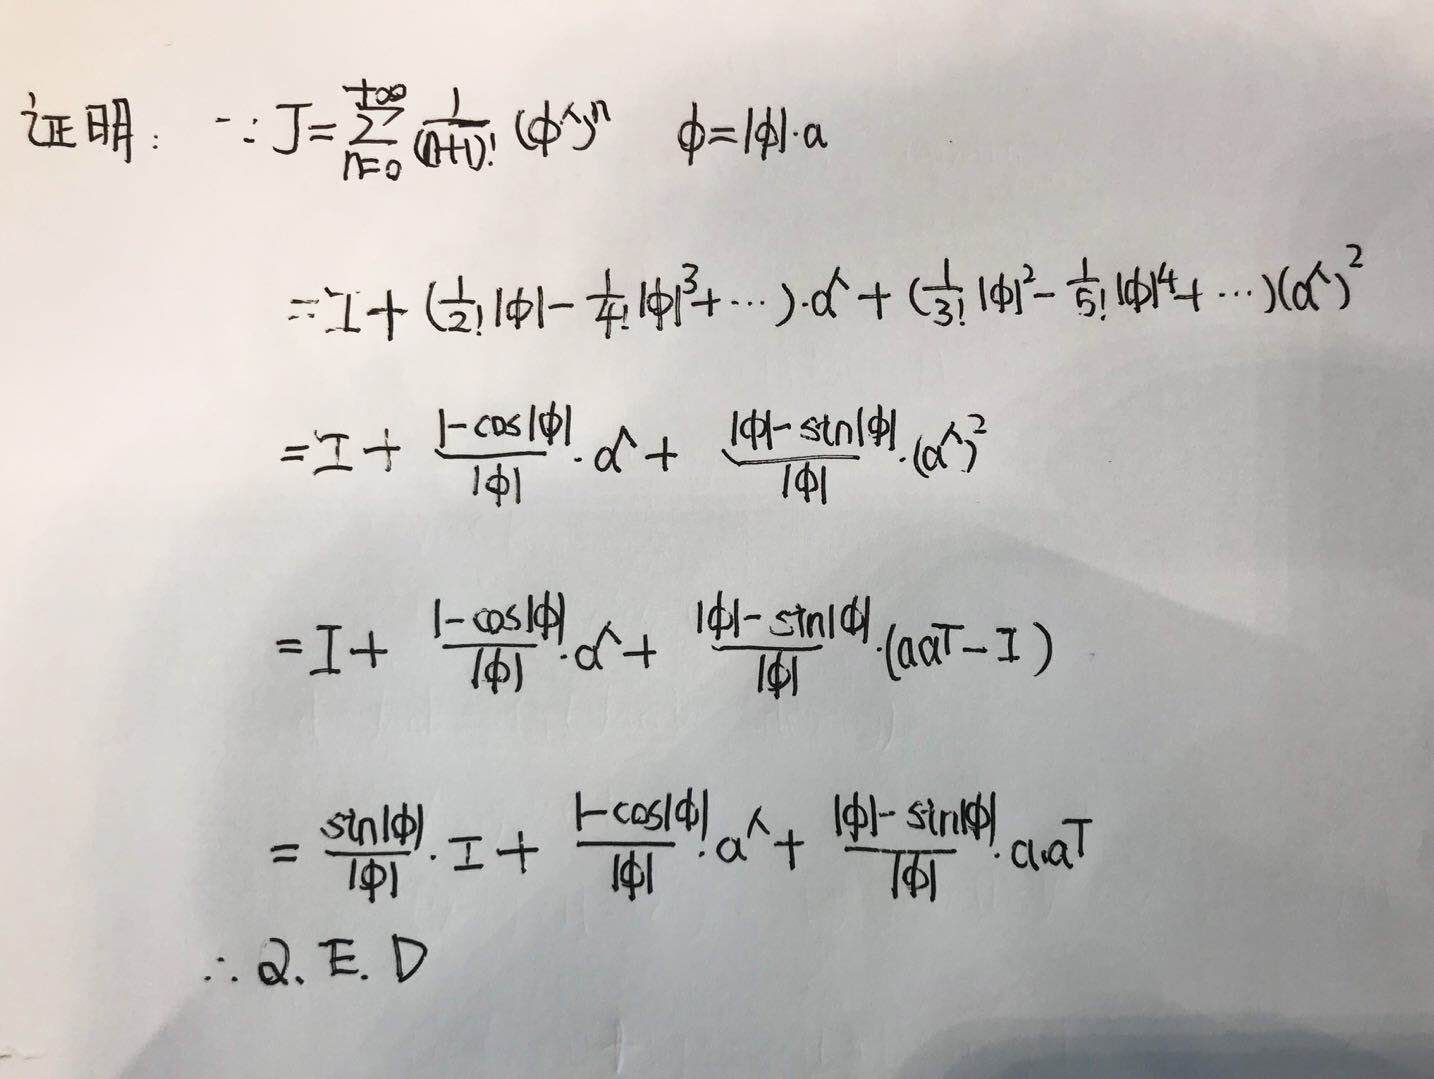 证明: ∵ J = \sum_{n=0}^{+∞} \frac{1}{(n+1)!} (φ^∧)^n φ = |φ|·a
= I + (\frac{1}{2!}|φ| - \frac{1}{4!}|φ|^3 + ···)·a^∧ + (\frac{1}{3!}|φ|^2 - \frac{1}{5!}|φ|^4 + ···)(a^∧)^2
= I + \frac{1-cos|φ|}{|φ|}·a^∧ + \frac{|φ|-sin|φ|}{|φ|}·(a^∧)^2
= I + \frac{1-cos|φ|}{|φ|}·a^∧ + \frac{|φ|-sin|φ|}{|φ|}·(aa^T - I)
= \frac{sin|φ|}{|φ|}·I + \frac{1-cos|φ|}{|φ|}·a^∧ + \frac{|φ|-sin|φ|}{|φ|}·a·a^T
∴ Q.E.D